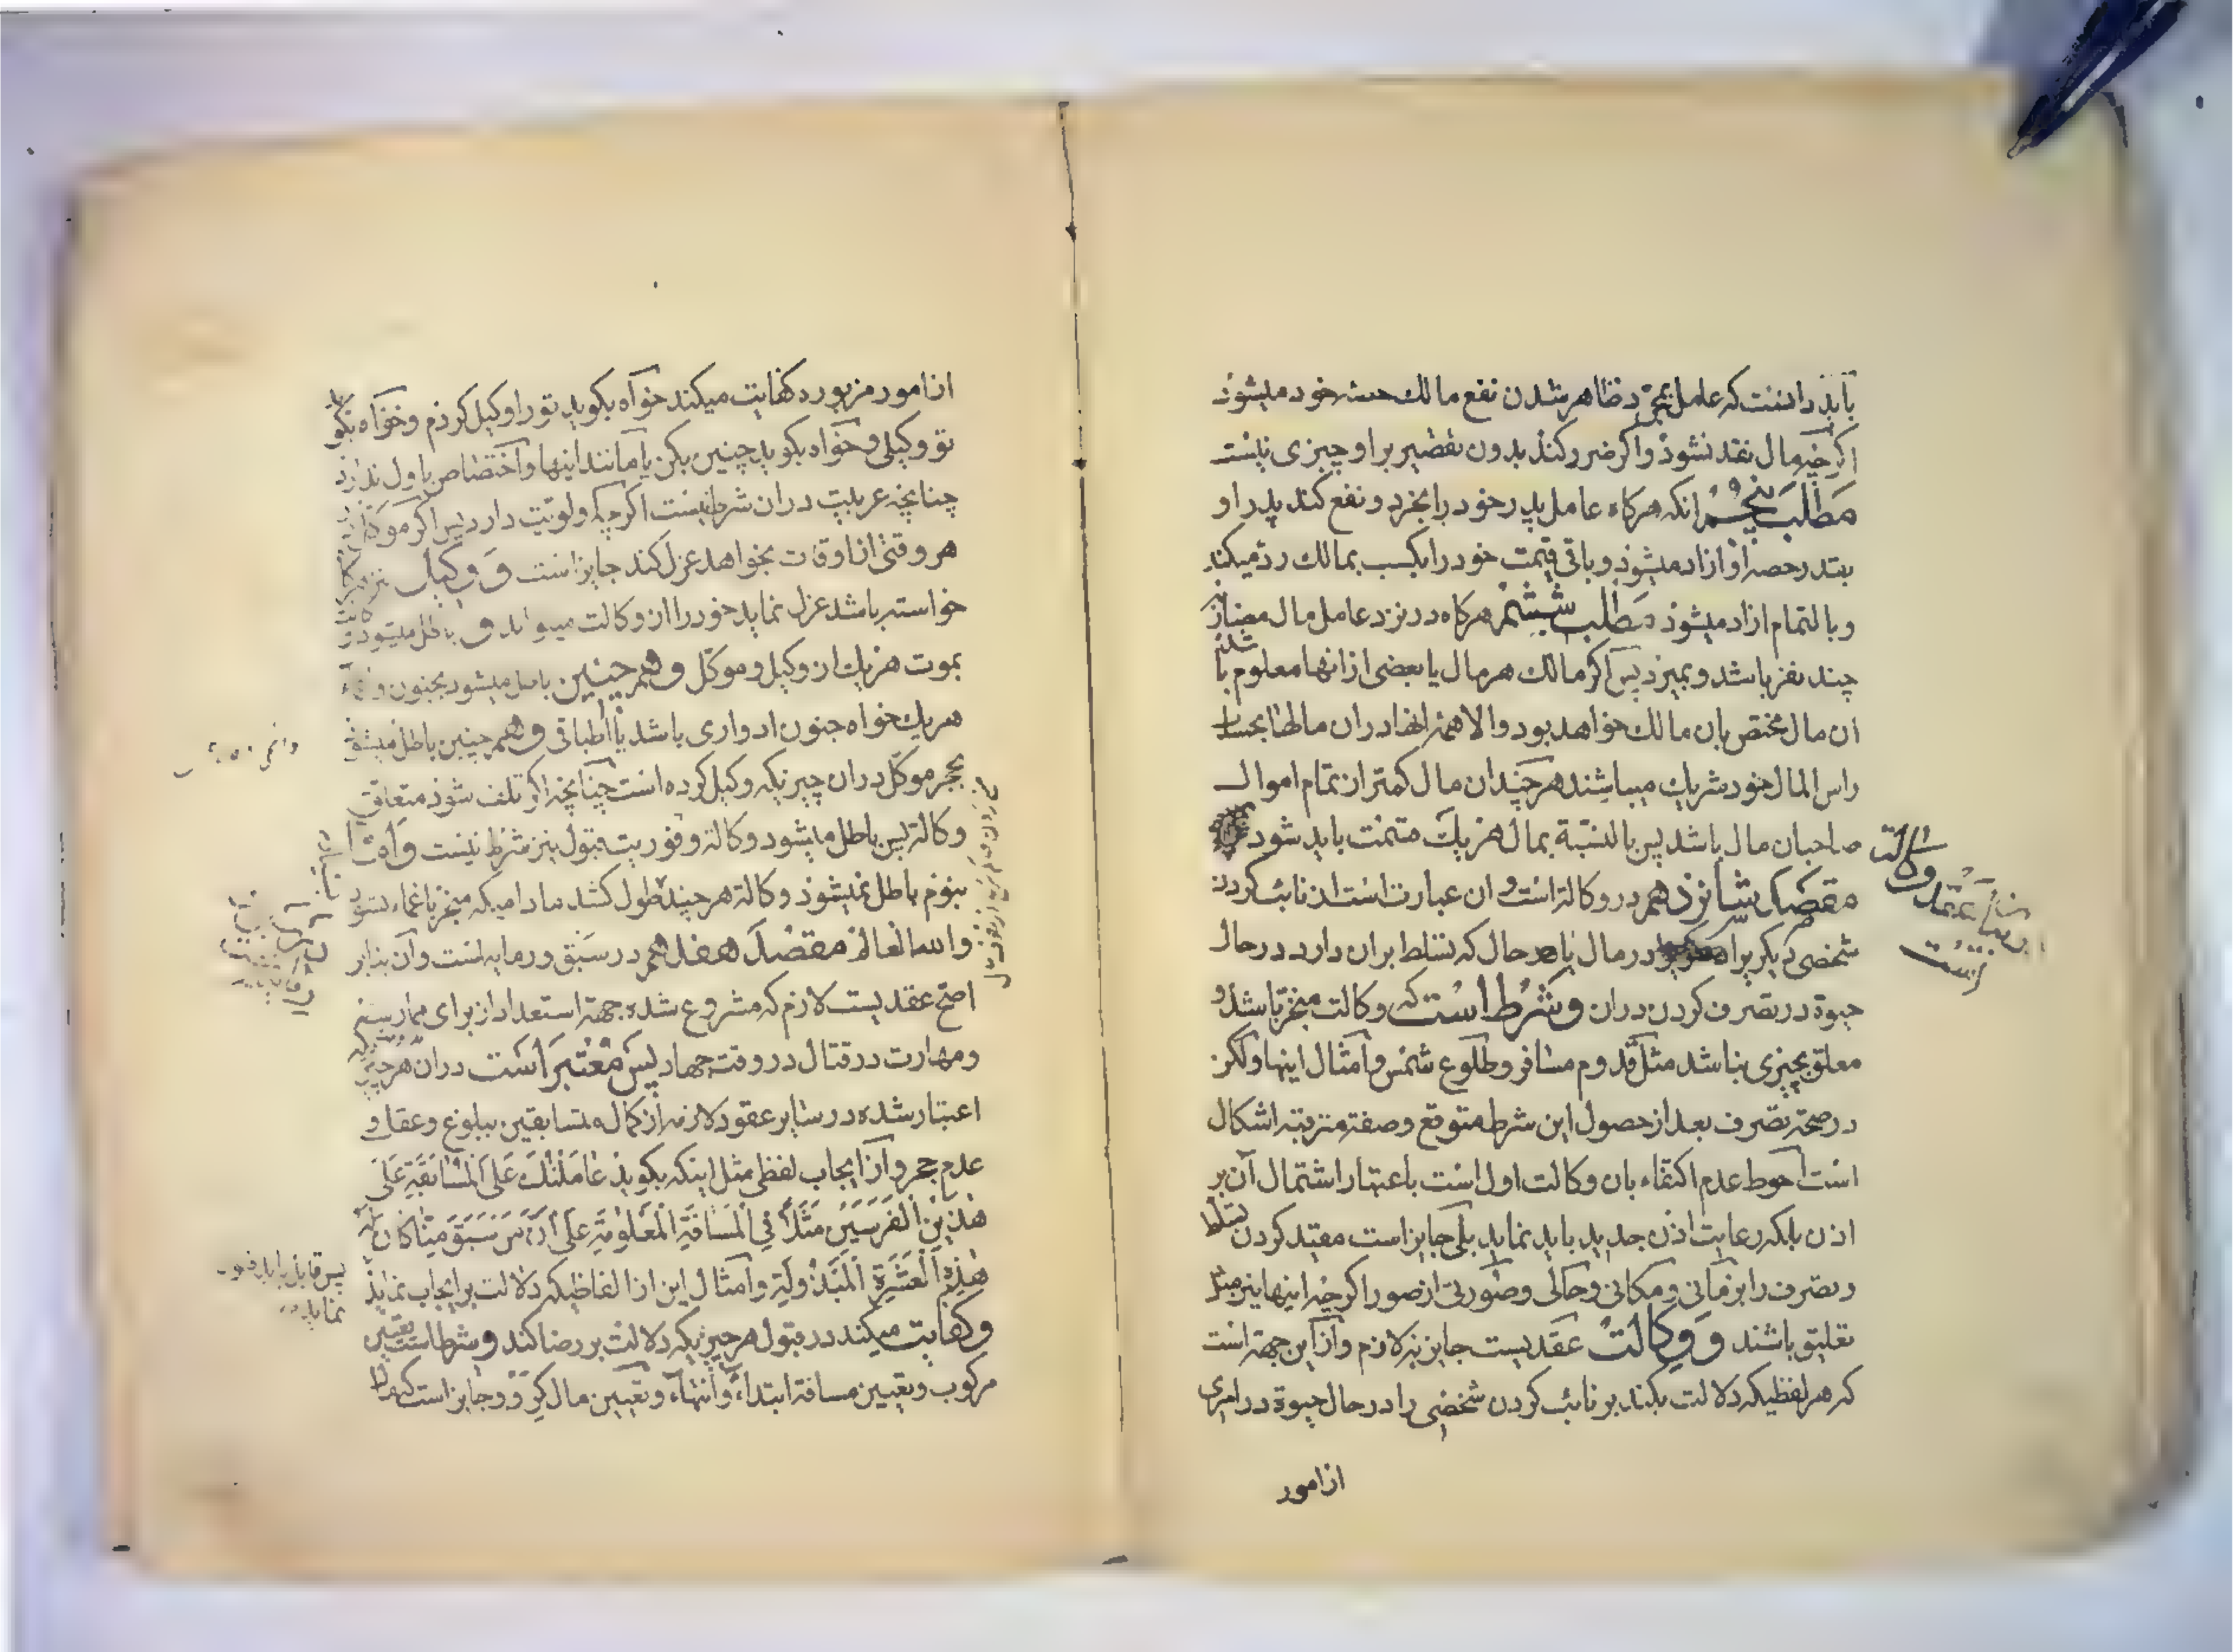 باید دانست که عامل بمجرد ظاهر شدن نفع مالک حصه خود میشود
اگرچه مال نقد نشود واگر ضرر کند بدون تقصیر بر او چیزی نیست
مطلب پنجم انکه هرکاه عامل پدر خود را بخرد و نفع کند پدر او
بقدر حصه او ازاد میشود و باقی قیمت خود را بکسب بمالک رد میکند
و بالتمام ازاد میشود مطلب ششم هرکاه در نزد عامل مال مضاربه
چند نفر باشد و بمیرد پس اکر مالک هر مال یا بعضی از انها معلوم باشد
ان مال مختص بان مالک خواهد بود والا همه انها دران مالها بحساب
راس المال خود شریک میباشند هرچند ان مال کمتر از تمام اموال
صاحبان مال باشد پس بالنسبة بمال هر یک قسمت باید شود
مقصد شانزدهم در وکالة است و ان عبارت است از نائب کردن
شخصی دیکریرا در مال یا هر حال که تسلط بران دارد در حال
حیوة در تصرف کردن دران و شرط است که وکالت منجز باشد و
معلق بچیزی نباشد مثل قدوم مسافر و طلوع شمس و امثال اینها ولکن
در صحة تصرف بعد از حصول این شرط متوقع وصفة مترقبه اشکال
است احوط عدم اکتفاء بان وکالت اول است باعتبار اشتمال آن بر
اذن بلکه رعایت اذن جدید باید نماید بلی جایز است مقید کردن تسلط
و تصرف را بزمانی و مکانی و حالی و صورتی از صور اکرچه اینها نیز مثل
تعلیق باشند و وکالت عقدیست جایز نه لازم و از این جهة است
که هر لفظیکه دلالت بکند بر نائب کردن شخصی را در حال حیوة در امری
از امور
از امور مزبوره کفایت میکند خواه بکوید تو را وکیل کردم و خواه بکوید
تو وکیلی و خواه بکوید چنین بکن یا مانند اینها و اختصاص باول ندارد
چنانچه عربیت دران شرط نیست اکرچه اولویت دارد پس اکر موکل
هر وقتی از اوقات بخواهد عزل کند جایز است و وکیل نیز هرکاه
خواسته باشد عزل نماید خود را از وکالت میتواند و باطل میشود
بموت هر یک از وکیل و موکل و همچنین باطل میشود بجنون و اغماء
هر یک خواه جنون ادواری باشد یا اطباقی و همچنین باطل میشود
بحجر موکل دران چیزیکه وکیل کرده است چنانچه اکر تلف شود متعلق
وکالة پس باطل میشود وکالة و فوریت قبول نیز شرط نیست و امّا
بنوم باطل نمیشود وکالة هرچند طول کشد مادامیکه منجر باغماء نشود
والله العالم مقصد هفدهم در سبق و رمایه است و آن بنابر
اصح عقدیست لازم که مشروع شده جهة استعداد از برای ممارست
و مهارت در قتال در وقت جهاد پس معتبر است دران هرچیزیکه
اعتبار شده در سایر عقود لازمه از کمال متسابقین ببلوغ و عقل و
عدم حجر و از ایجاب لفظی مثل اینکه بکوید عاملتک علی المسابقة علی
هذین الفرسین مثلا فی المسافة المعلومة علی ان من سبق منا کان له
هذه العشرة المبذولة و امثال این از الفاظیکه دلالت بر ایجاب نماید
و کفایت میکند در قبول هر چیزیکه دلالت بر رضا کند و شرط است تعیین
مرکوب و تعیین مسافة ابتداء و انتهاء و تعیین مال کرو و جایز است که